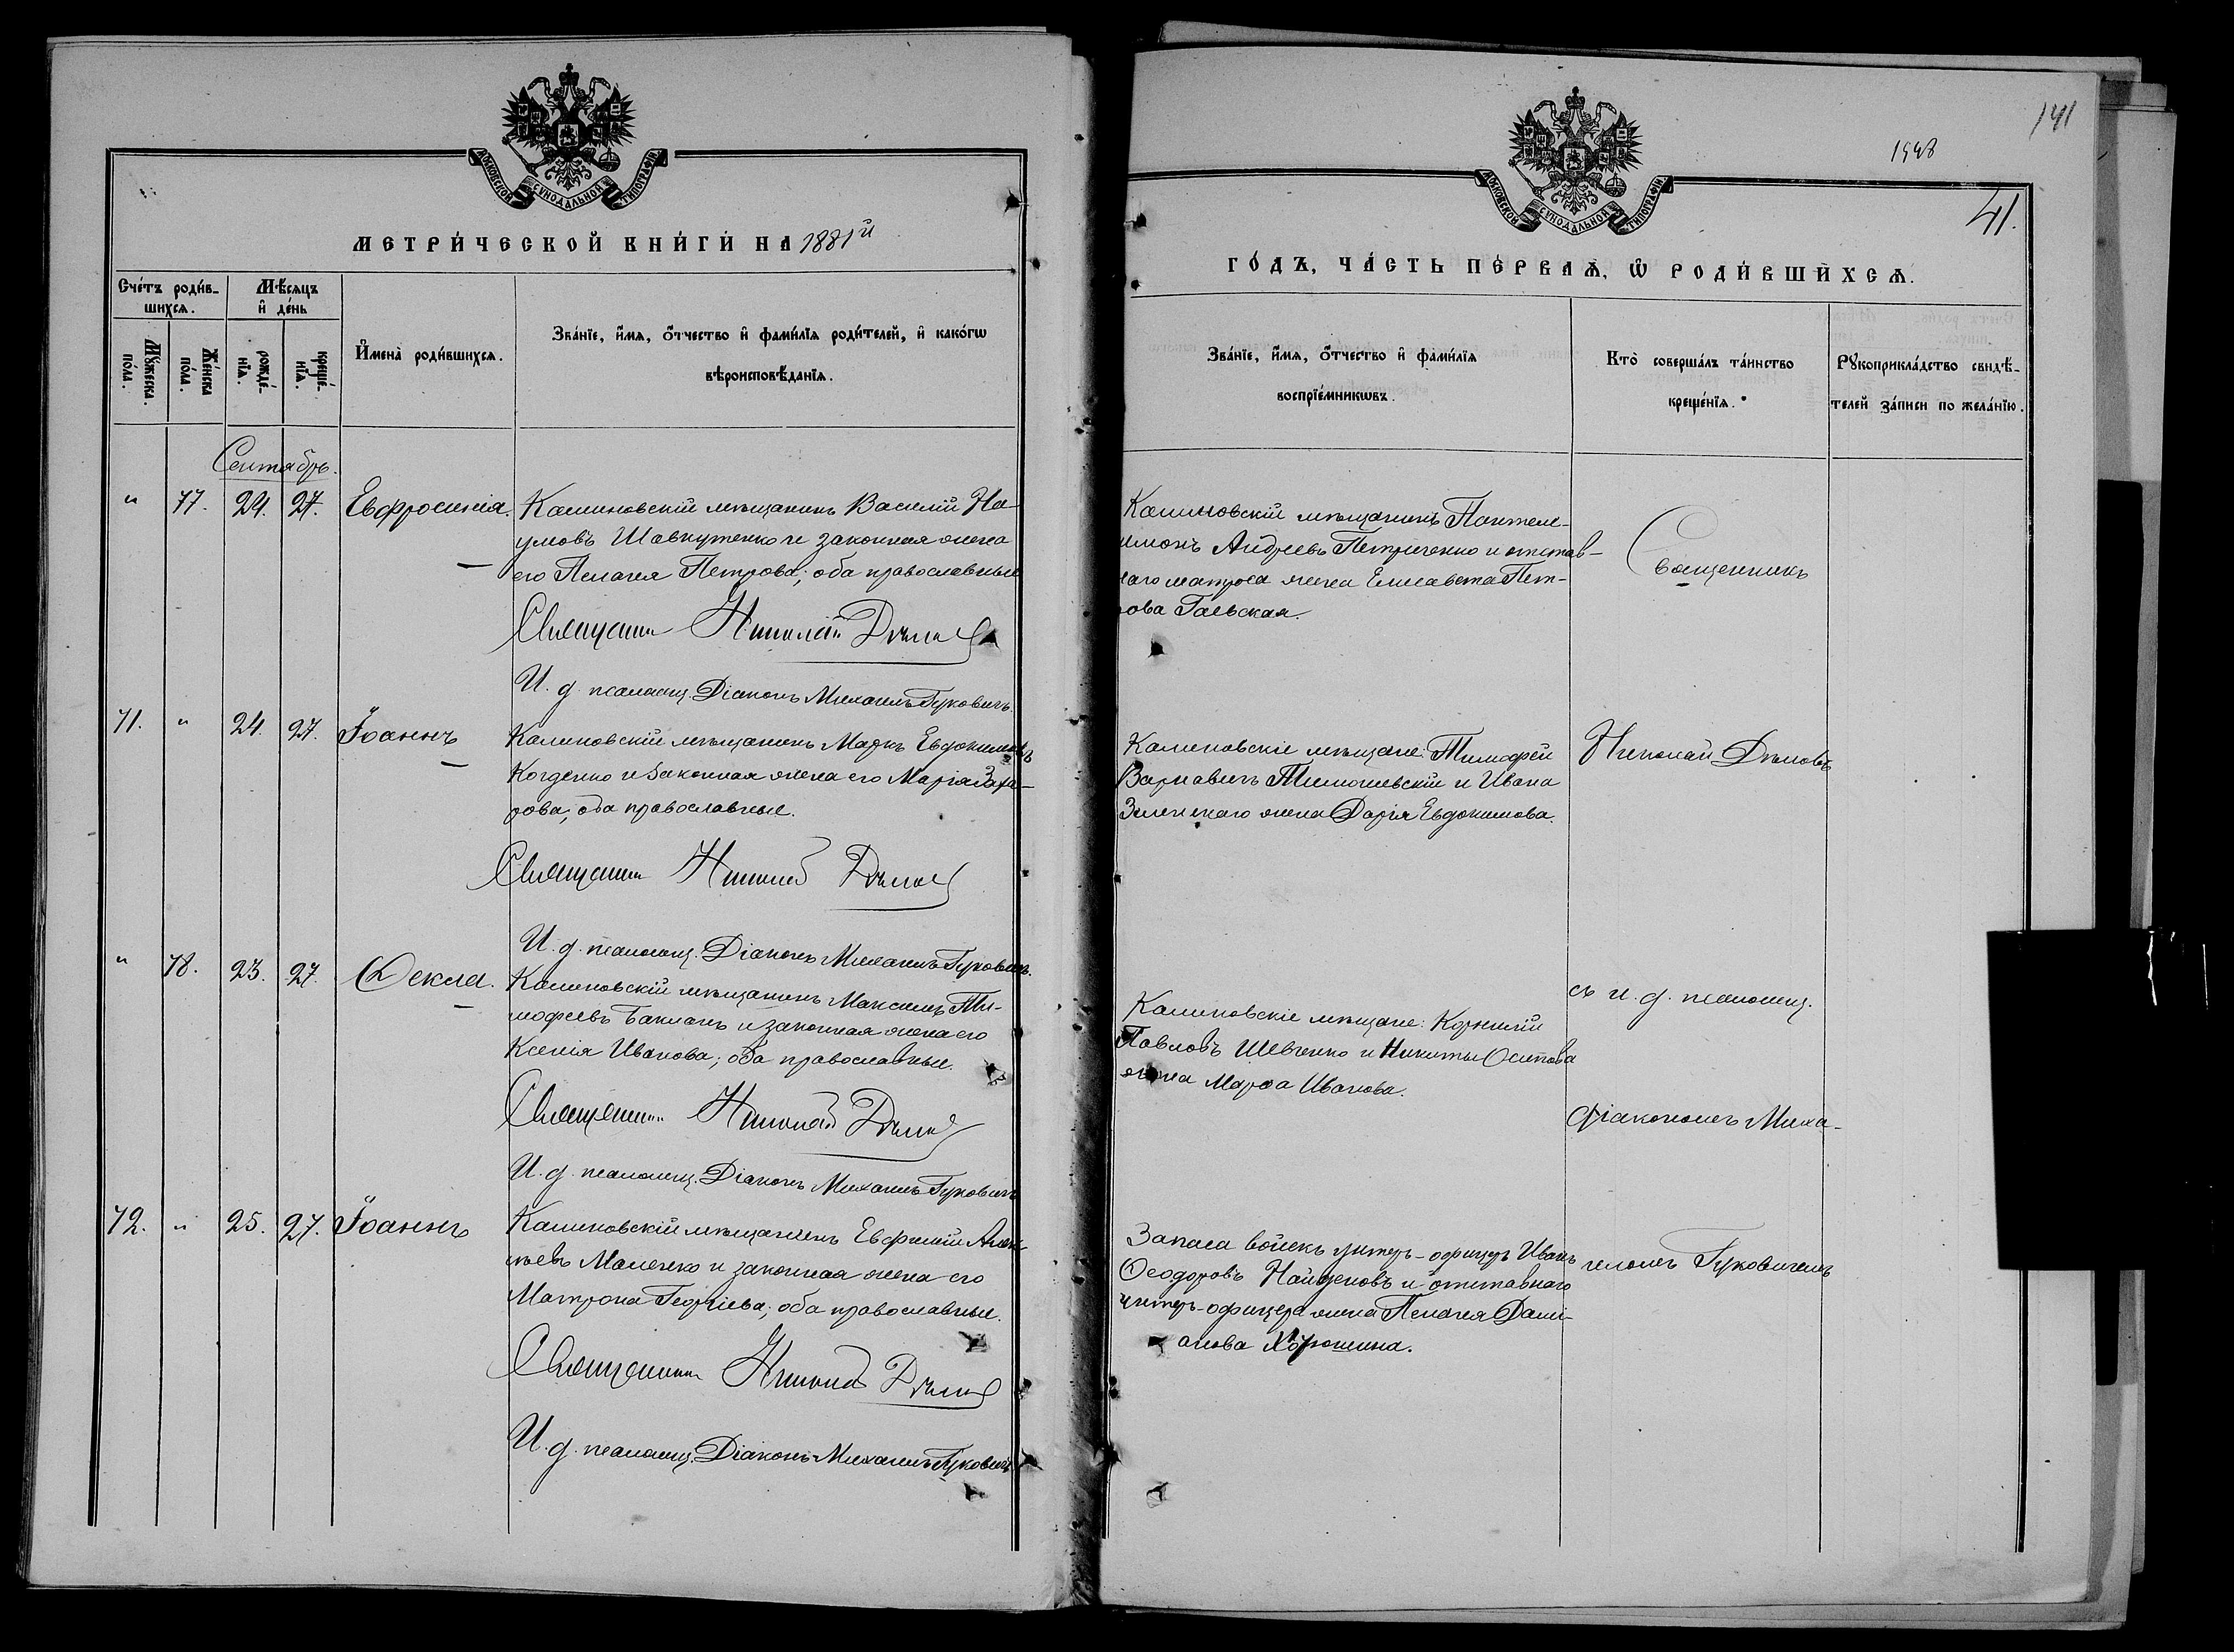 МОСКОВСКОЙ СѴНОДАЛЬНОЙ ТИПОГРАФІИ
МЕТРИ́ЧЕСКОЙ КНИ́ГИ НА 1881й
Сче́тъ роди́в-
шихсѧ.
Мѣ́сѧцъ
и҆ де́нь
Мꙋ́жеска.
по́ла.
Же́нска
по́ла.
рожде́-
нїѧ.
креще́-
нїѧ.
И҆мена̀ роди́вшихсѧ.
Зва́нїе, и҆́мѧ, ѻ҆́тчество и҆ фами́лїѧ роди́телей, и҆ како́гѡ
вѣроисповѣ́данїѧ.
Сентябрь.
" 77. 24. 27. Евфросинія.
Калиновскій мѣщанинъ Василій На-
умовъ Шавкутенко и законная жена
его Пелагея Петрова; оба православные
Священник Николай Дьмов
И. д. псаломщ. Діаконъ Михаилъ Гуковичъ.
71. " 24. 27. Іоаннъ
Калиновскій мѣщанинъ Маркъ Евдокимовъ
Когденко и законная жена его Марія Заха-
рова; оба православные.
Священник Николай Дьмов
И. д. псаломщ. Діаконъ Михаилъ Гуковичъ.
" 78. 23. 27. Ѳекла.
Калиновскій мѣщанинъ Максимъ Ти-
мофеевъ Бакланъ и законная жена его
Ксенія Иванова; оба православные.
Священник Николай Дьмов
И. д. псаломщ. Діаконъ Михаилъ Гуковичъ
72. " 25. 27. Іоаннъ
Калиновскій мѣщанинъ Евфимій Алек-
сѣевъ Маленко и законная жена его
Матрона Георгіева; оба православные.
Священник Николай Дьмов
И. д. псаломщ. Діаконъ Михаилъ Гуковичъ
141
1448
41.
МОСКОВСКОЙ СѴНОДАЛЬНОЙ ТИПОГРАФІИ
ГО́ДЪ, ЧА́СТЬ ПЕ́РВАѦ, Ѡ҆ РОДИ́ВШИХСѦ.
Зва́нїе, и҆́мѧ, ѻ҆́тчество и҆ фами́лїѧ
воспрїе́мникѡвъ.
Кто̀ соверша́лъ та́инство
креще́нїѧ.
Рꙋкоприкла́дство свидѣ́-
телей за́писи по жела́нїю.
Калиновскій мѣщанинъ Пантеле-
имонъ Андреевъ Петриченко и отстав-
наго матроса жена Елисавета Пет-
рова Гаевская.
Священникъ
Калиновскіе мѣщане: Тимофей
Варнавичъ Тимошевскій и Ивана
Зиленскаго жена Дарія Евдокимова.
Николай Дьмовъ
Калиновскіе мѣщане: Корнилій
Павловъ Шевченко и Никиты Осипова
жена Марѳа Иванова.
съ и. д. псаломщ.
Діакономъ Миха-
Запаса войскъ унтеръ-офицеръ Иванъ
Ѳеодоровъ Найденовъ и отставнаго
унтеръ-офицера жена Пелагея Дамі-
анова Хорошина.
иломъ Гуковичемъ